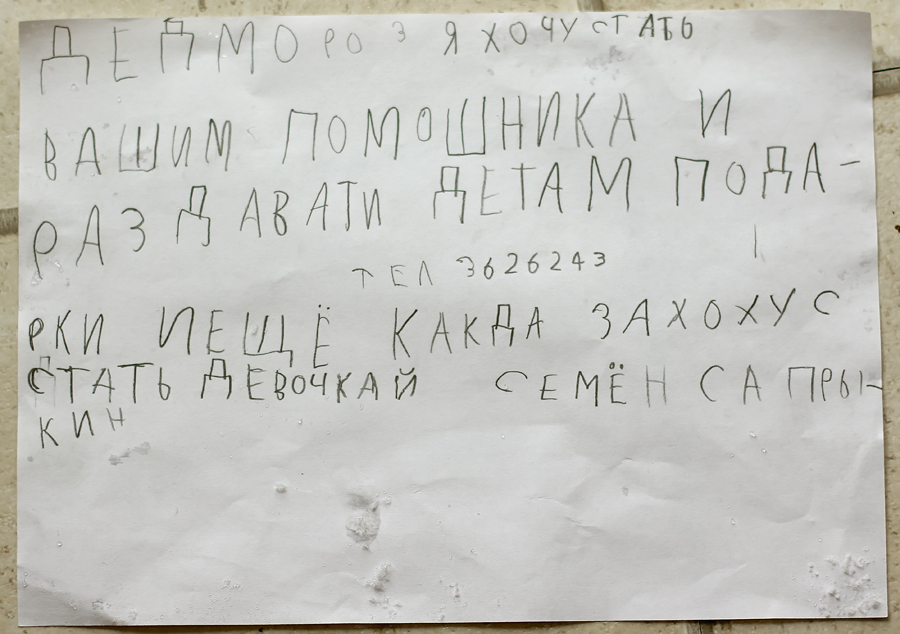 ДЕДМОРОЗ Я ХОЧУ СТАТЬ
ВАШИМ ПОМОШНИКА И
РАЗДАВАТИ ДЕТАМ ПОДА-
ТЕЛ 3626243
РКИ ИЕЩЁ КАКДА ЗАХОХУ С
СТАТЬ ДЕВОЧКАЙ СЕМЁН САПРЫ-
КИН